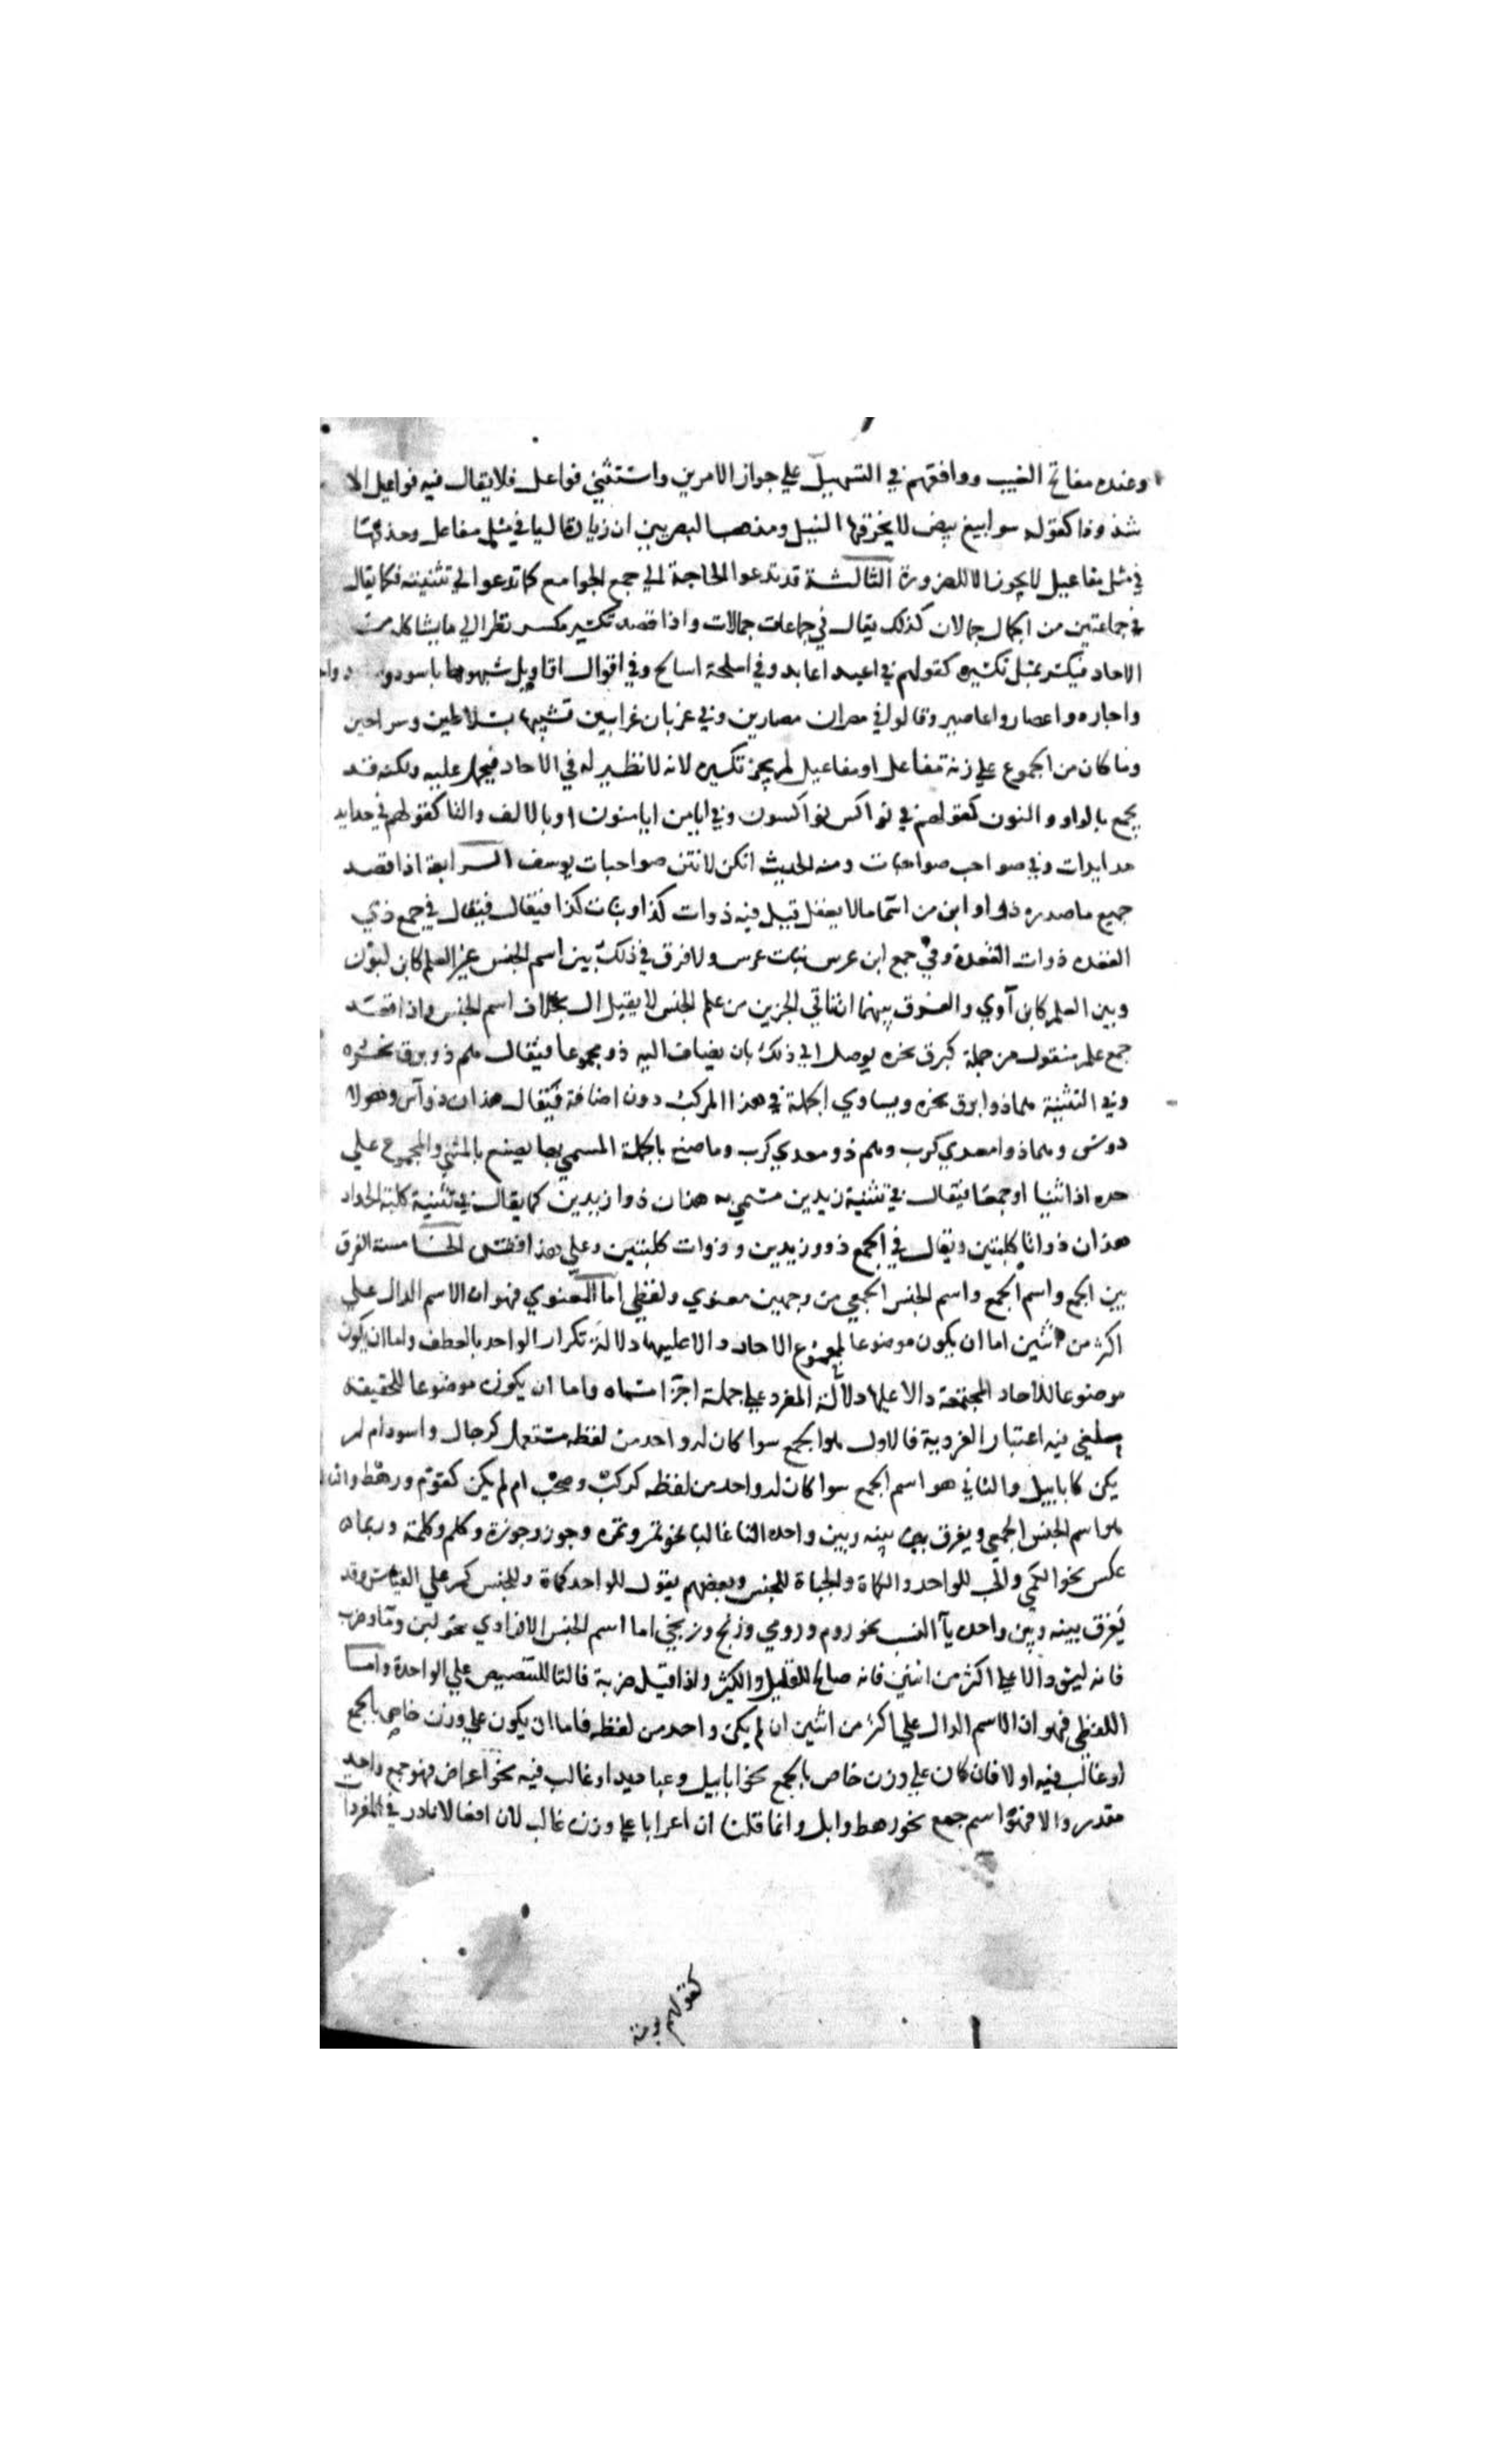 وعنده مفاتح الغيب ووافقهم في التسهيل علي جواز الامرين واستثني فواعل فلا يقال فيه فواعيل الا
شذوذا كقوله سوابيغ بيض لا يخرقها النبل ومذهب البصريين ان زيادة اليا في مثل مفاعل وحذفها
في مثل مفاعيل لا يجوز الا للضرورة الثالثة قد تدعوا الحاجة الي جمع الجوامع كما تدعوا الي تثنيته فكما يقال
في جماعتين من الجمال جمالان كذلك يقال في جماعات جمالات واذا قصد تكسير مكسر نظر الي ما يشاكله من
الاحاد فيكسر بمثل تكسيره كقولهم في اعبد اعابد وفي اسلحة اسالح وفي اقوال اقاويل شبهوها باسود
واجارد واعصار واعاصير وقالوا في مصران مصارين وفي غربان غرابين تشبيها بسلاطين وسراحين
وما كان من الجموع علي زنة مفاعل او مفاعيل لم يجز تكسيره لانه لا نظير له في الاحاد فيحمل عليه ولكنه قد
يجمع بالواو والنون كقولهم في نواكس نواكسون وفي ايامن ايامنون او بالالف والتا كقولهم في حدايد
حدايدات وفي صواحب صواحبات ومنه الحديث انكن لانتن صواحبات يوسف الرابعة اذا قصد
جميع ما صدره ذو او ابن من اسما ما لا يعقل قيل فيه ذوات كذا وبنات كذا فيقال فيقال في جمع ذي
القعده ذوات القعدة وفي جمع ابن عرس بنات عرس ولا فرق في ذلك بين اسم الجنس غير العلم كابن لبون
وبين العلم كابن آوي والفرق بينهما ان ثاني الجزين من علم الجنس لا يقبل ال بخلاف اسم الجنس واذا قصد
جمع علم منقول من جملة كبرق نحره يوصل الي ذلك بان يضاف اليه ذو مجموعا فيقال هم ذو وبرق نحره
وفي التثنية هما ذوا برق نحره ويساوي الجملة في هذا المركب دون اضافة فيقال هذان ذوا وهولا
وهما ذوا معدي كرب وهم ذو معدي كرب وما صنع بالجملة المسمي بها يصنع بالمثني والمجموع علي
حده اذا ثنيا او جمعا فيقال في تثنية زيدين مسمي به هذان ذوا زيدين كما يقال في تثنية كلبتي الحداد
هذان ذواتا كلبتين ويقال في الجمع ذوو زيدين وذوات كلبتين وعلي هذا فقس الخامسة الفرق
بين الجمع واسم الجمع واسم الجنس الجمعي من وجهين معنوي ولفظي اما المعنوي فهو ان الاسم الدال علي
اكثر من اثنين اما ان يكون موضوعا لمجموع الاحاد دالا عليها دلالة تكرار الواحد بالعطف واما ان يكون
موضوعا للاحاد المجتمعة دالا عليها دلالة المفرد علي جملة اجزا مسماه واما ان يكون موضوعا للحقيقة
ملغي فيه اعتبار الفردية فالاول هو الجمع سوا كان له واحد من لفظه مستعمل كرجال واسود ام لم
يكن كابابيل والثاني هو اسم الجمع سوا كان له واحد من لفظه كركب وصحب ام لم يكن كقوم ورهط
هو اسم الجنس الجمعي ويفرق بينه وبين واحده التا غالبا نحو تمر وتمره وجوز وجوزة وكلم وكلمة وربما
عكس نحو الكمي والجب للواحد والكماة والجباة للجنس وبعضهم يقول للواحد كماة وللجنس كم علي القياس وقد
يفرق بينه وبين واحده يآ النسب نحو روم ورومي وزنج وزنجي اما اسم الجنس الافرادي نحو لبن وما وضرب
فانه ليس دالا علي اكثر من اثنين فانه صالح للقليل والكثير واذا قيل ضربة فالتا للتنصيص علي الواحدة واما
اللفظي فهو ان الاسم الدال علي اكثر من اثنين ان لم يكن واحد من لفظه فاما ان يكون علي وزن خاص بالجمع
او غالب فيه او لا فان كان علي وزن خاص بالجمع نحو ابابيل وعباديد او غالب فيه نحو اعراض فهو جمع واحد
مقدر والا فهو اسم جمع نحو رهط وابل وانما قلنا ان اعرابا علي وزن غالب لان افعالا نادر في المفردات
كقولهم برمة